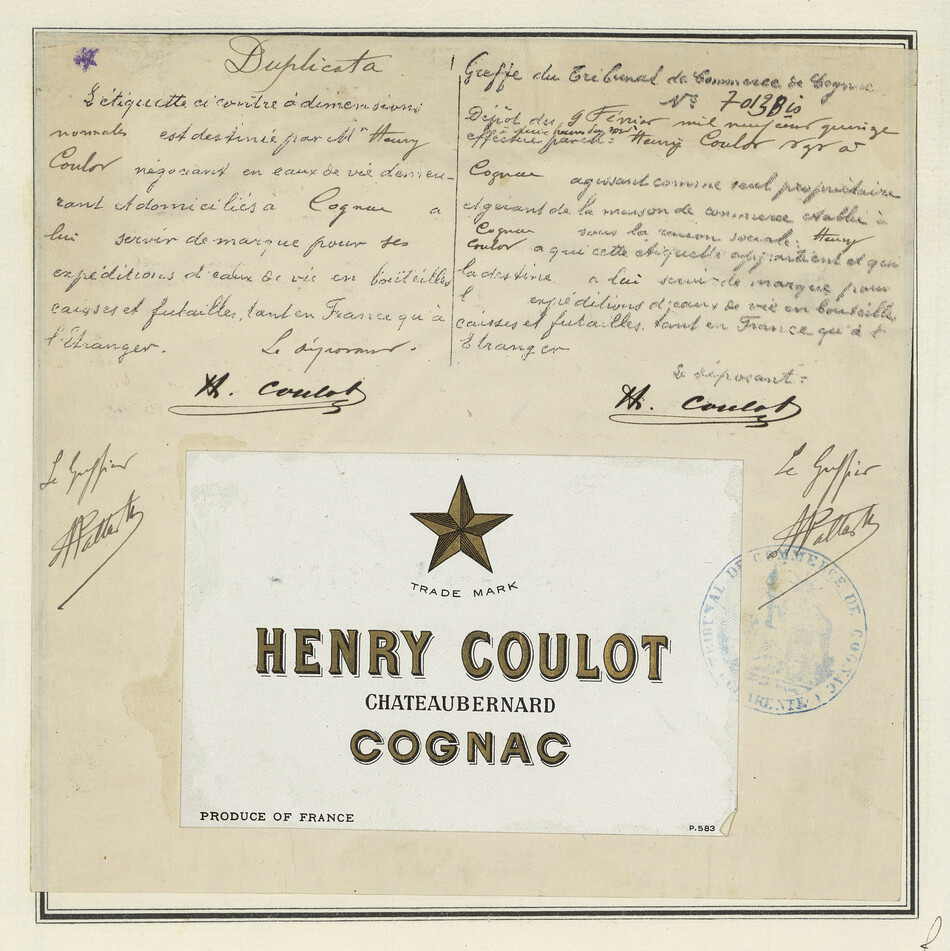 Duplicata
L'étiquette ci contre à dimensions
normales est destinée par Mr Henry
Coulot négociant en eaux de vie demeu-
rant et domicilié à Cognac à
lui servir de marque pour ses
expéditions d'eaux de vie en bouteilles
caisses et futailles, tant en France qu'à
l'Etranger.
Le déposant.
H. Coulot
Le Greffier
Greffe du Tribunal de Commerce de Cognac
No 7013 Bis
Dépôt du 9 Février mil neuf cent quinze
effectué par Henry Coulot à
Cognac agissant comme seul propriétaire
et gérant de la maison de commerce établie à
Cognac sous la raison sociale: Henry
Coulot à qui cette étiquette appartient et qui
la destine à lui servir de marque pour
l' expéditions d'eaux de vie en bouteilles
caisses et futailles, tant en France qu'à l'
Etranger
Le déposant:
H. Coulot
Le Greffier
TRADE MARK
HENRY COULOT
CHATEAUBERNARD
COGNAC
PRODUCE OF FRANCE
P.583
TRIBUNAL DE COMMERCE DE COGNAC
CHARENTE